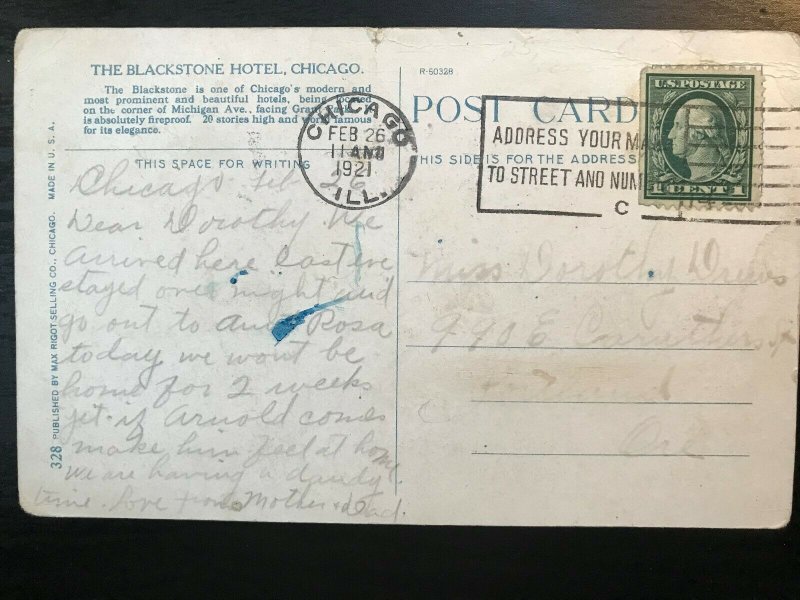 THE BLACKSTONE HOTEL, CHICAGO.
The Blackstone is one of Chicago's modern and
most prominent and beautiful hotels, being located
on the corner of Michigan Ave., facing Grant Park
is absolutely fireproof. 20 stories high and world famous
for its elegance.
THIS SPACE FOR WRITING
Chicago Feb 26
Dear Dorothy We
arrived here last eve
stayed over night and
go out to Aunt Rosa
today we wont be
home for 2 weeks
yet if Arnold comes
make him feel at home
we are having a dandy
time. Love from Mother & Dad.
328 PUBLISHED BY MAX RIGOT SELLING CO., CHICAGO. MADE IN U. S. A.
R-50328
POST CARD
THIS SIDE IS FOR THE ADDRESS
CHICAGO
FEB 26
11 AM
1921
ILL.
ADDRESS YOUR MA
TO STREET AND NUM
C
U.S. POSTAGE
1 CENT 1
Miss Dorothy
990 E Caruthers st
Portland
Ore